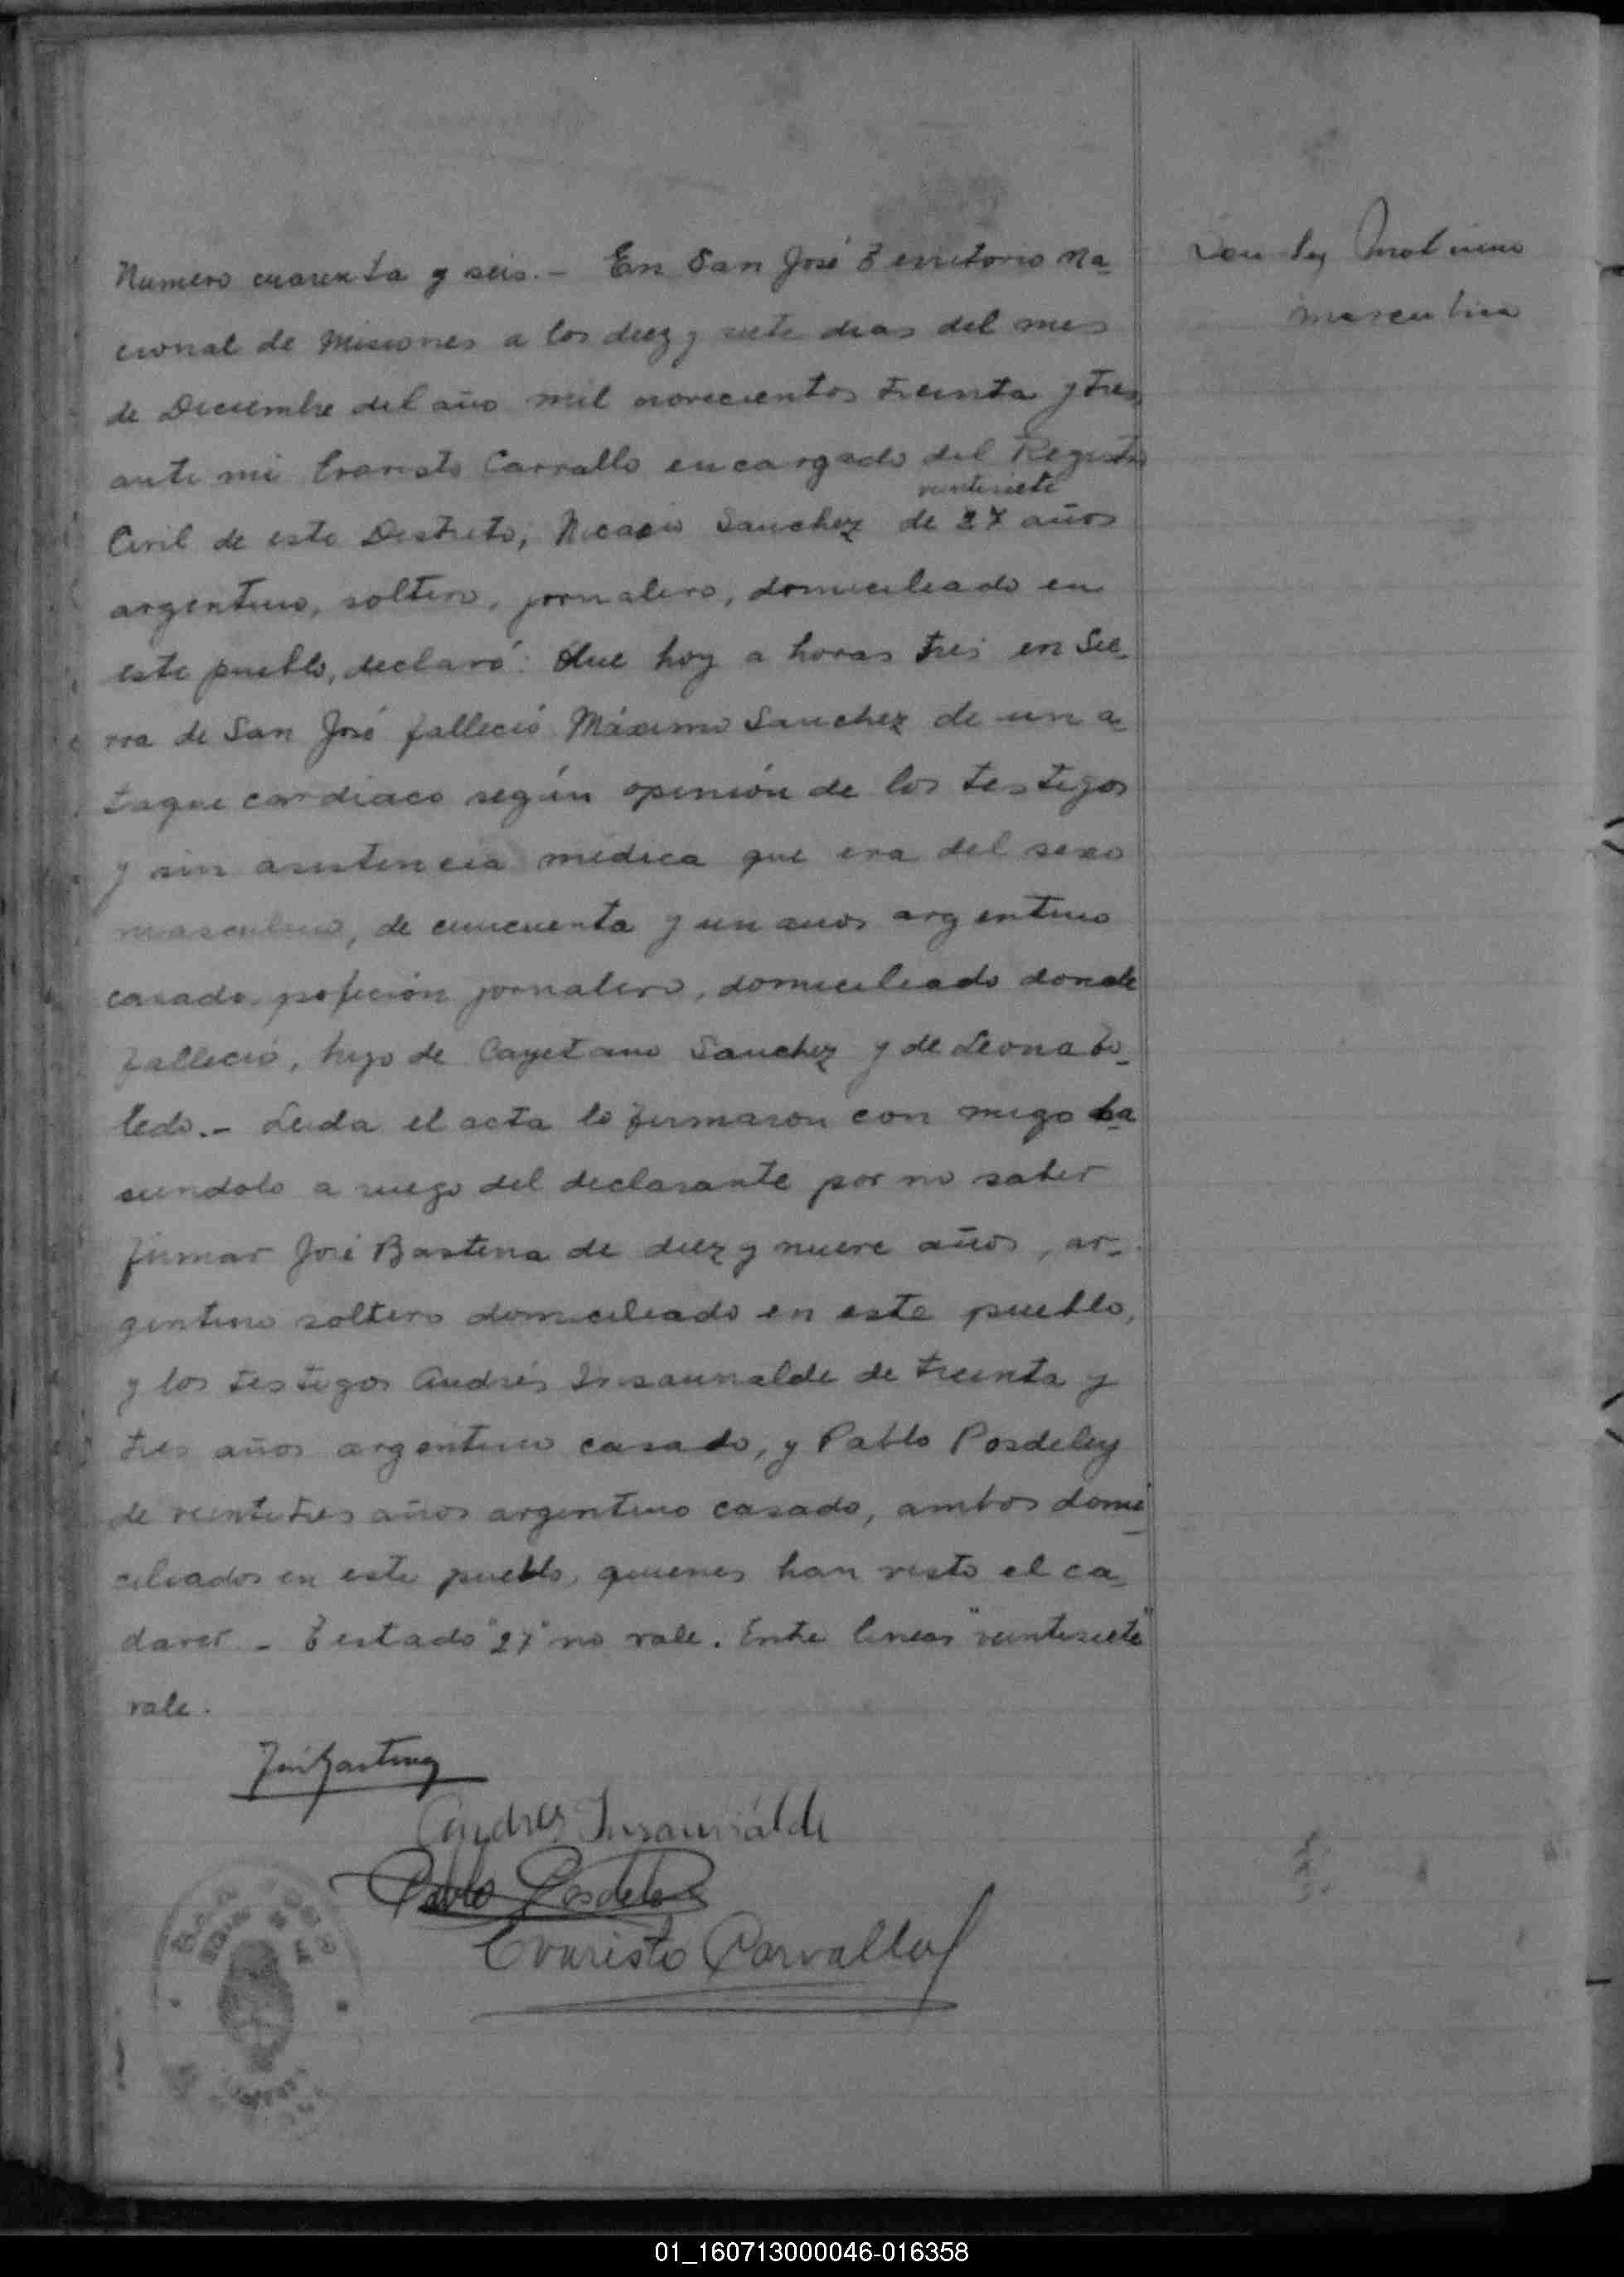 Numero cuarenta y seis.- En San José Territorio Na-
cional de Misiones a los diez y siete dias del mes
de Diciembre del año mil novecientos treinta y tres
ante mi Evaristo Carvallo encargado del Registro
veintisiete
Civil de este Distrito, Nicacio Sanchez de 27 años
argentino, soltero, jornalero, domiciliado en
este pueblo, declaró: Que hoy a horas tres en Sie-
rra de San José falleció Máximo Sanchez de un a-
taque cardiaco según opinión de los testigos
y sin asistencia médica que era del sexo
masculino, de cincuenta y un años argentino
casado, profeción jornalero, domiciliado donde
falleció, hijo de Cayetano Sanchez y de Leona To-
ledo.- Leida el acta lo firmaron con migo ha
ciendolo a ruego del declarante por no saber
firmar José Bastena de diez y nueve años, ar-
gentino soltero domiciliado en este pueblo,
y los testigos Andrés Insaurralde de treinta y
tres años argentino casado, y Pablo Posdeley
de veintitres años argentino casado, ambos domi
ciliados en este pueblo, quienes han visto el ca-
daver - Testado "27" no vale. Entre lineas "veintisiete"
vale.
Andres Insaurralde
Pablo Posdeley
Evaristo Carvallo
masculino
01_160713000046-016358